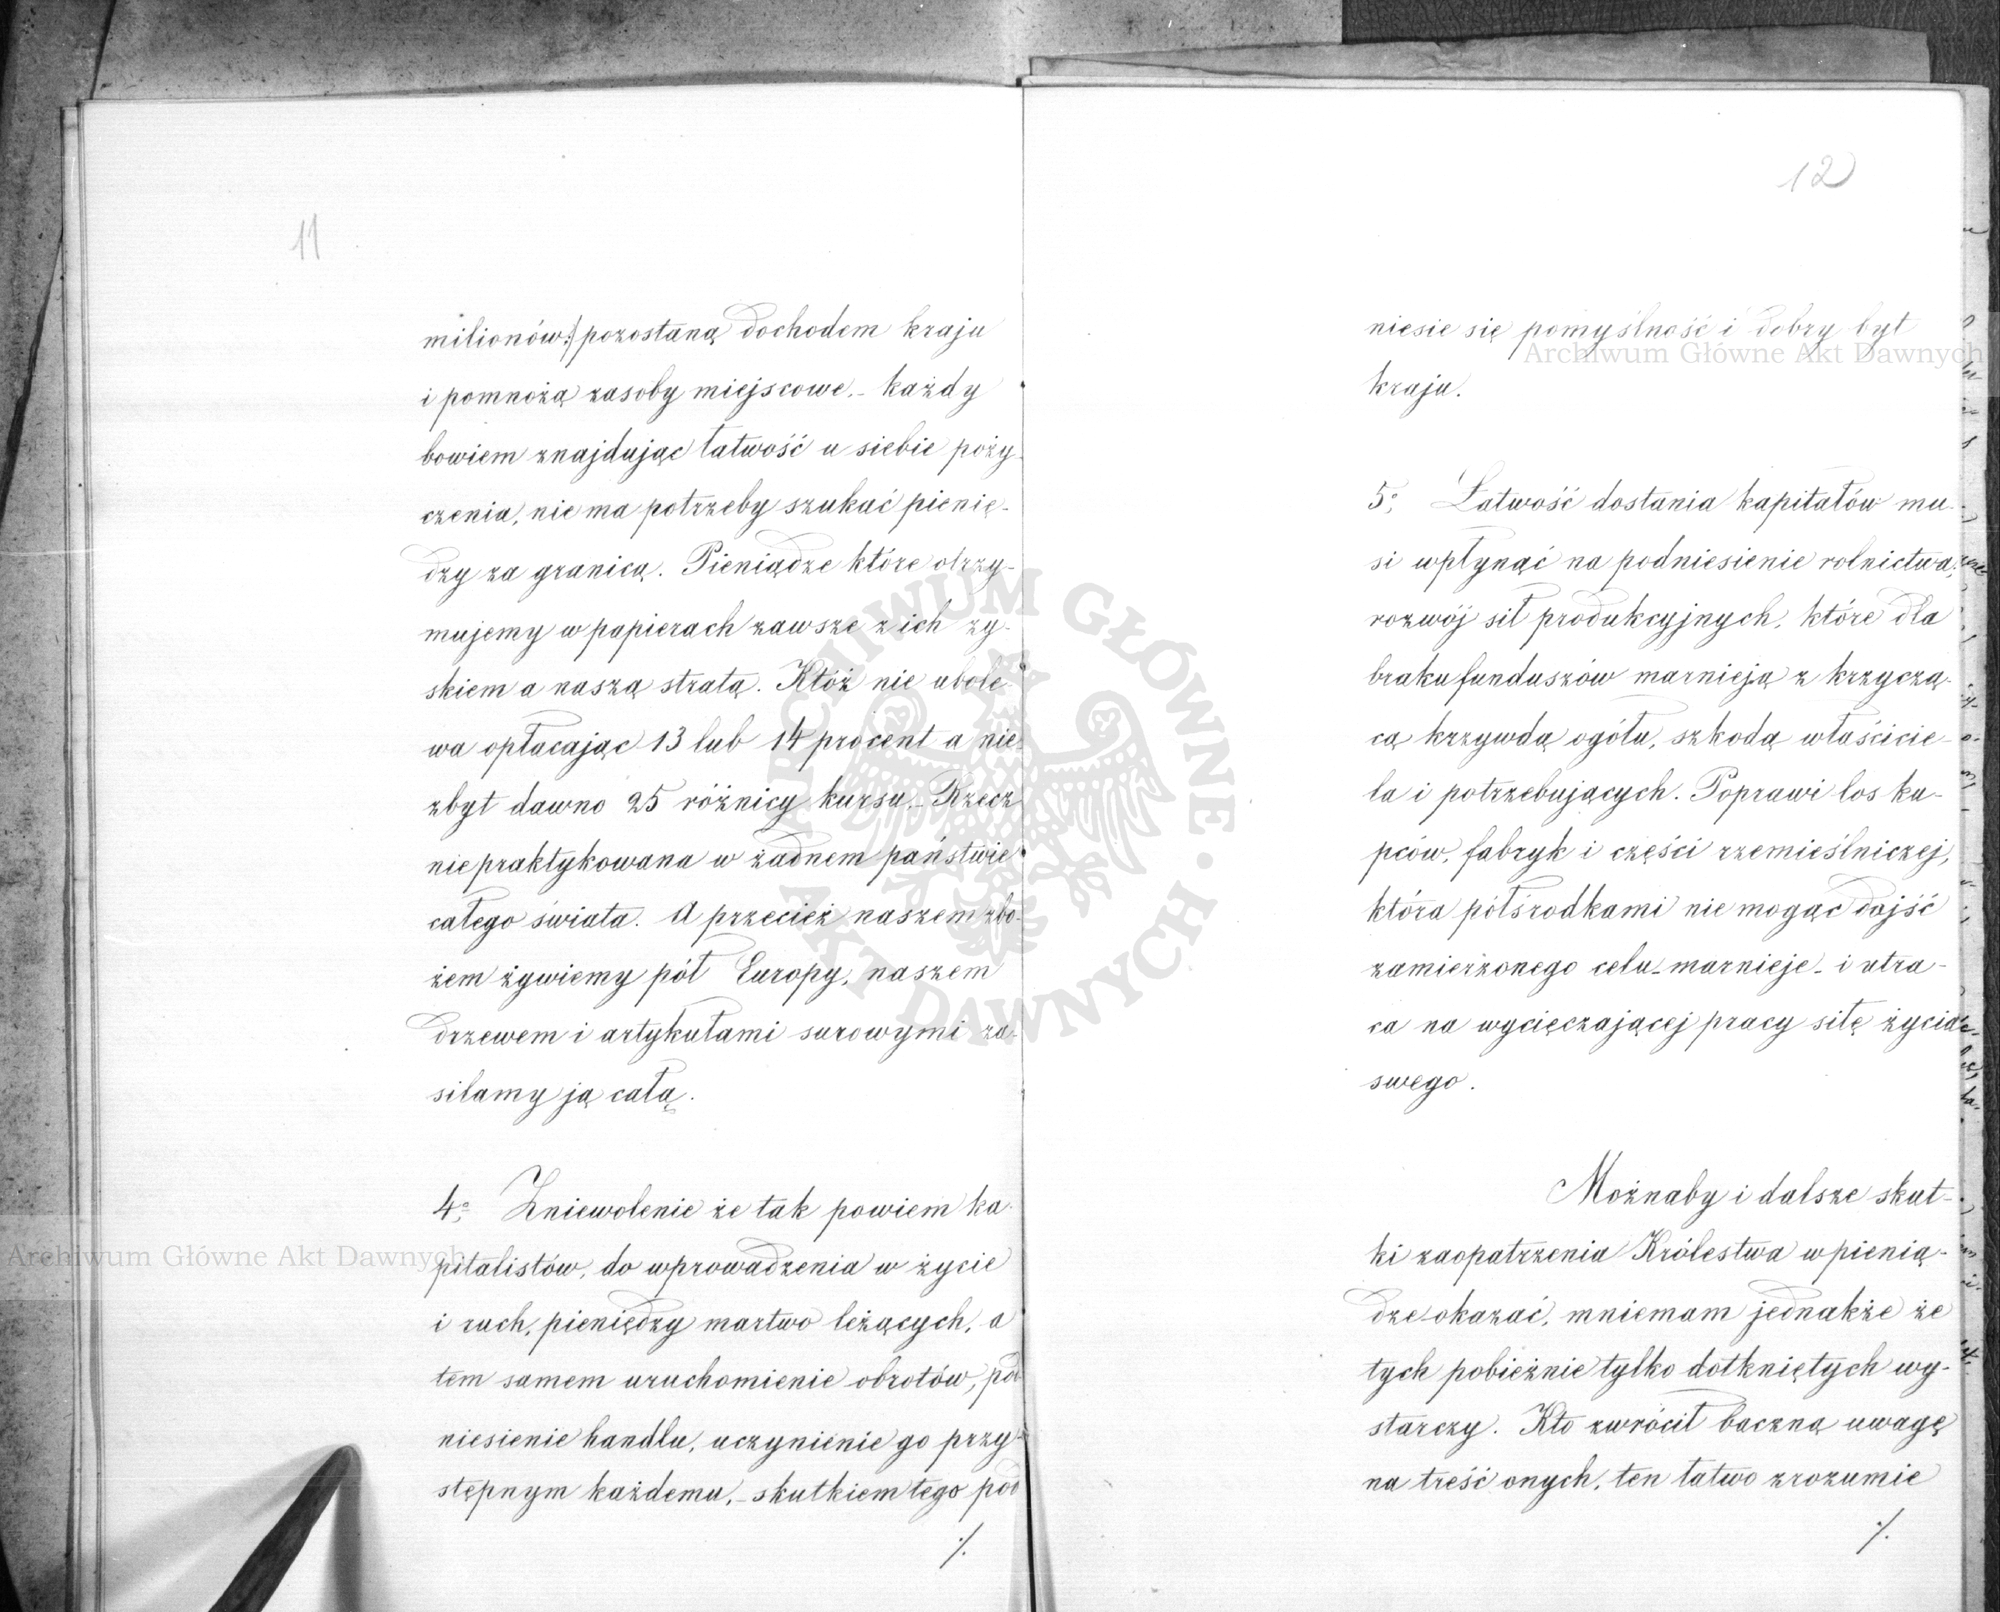 11
milionów:/ pozostaną dochodem kraju
i pomnożą zasoby miejscowe. – każdy
bowiem znajdując łatwość u siebie poży-
czenia, nie ma potrzeby szukać pienię-
dzy za granicą. Pieniądze które otrzy-
mujemy w papierach zawsze z ich zy-
skiem a naszą stratą. Któż nie ubole-
wa opłacając 13 lub 14 procent a nie-
zbyt dawno 25 różnicy kursu. – Rzecz
niepraktykowana w żadnem państwie
całego świata. A przecież naszem zbo-
żem żywiemy pół Europy, naszem
drzewem i artykułami surowymi za-
silamy ją całą.
4º, Zniewolenie że tak powiem ka-
pitalistów, do wprowadzenia w życie
i ruch, pieniędzy martwo leżących, a
tem samem uruchomienie obrotów, pod
niesienie handlu, uczynienie go przy-
stępnym każdemu, – skutkiem tego pod
./.
12
niesie się pomyślność i dobry byt
kraju.
5º, Łatwość dostania kapitałów mu-
si wpłynąć na podniesienie rolnictwa,
rozwój sił produkcyjnych, które dla
braku funduszów marnieją z krzyczą-
cą krzywdą ogółu, szkodą właścicie-
la i potrzebujących. Poprawi los ku-
pców, fabryk i części rzemieślniczej,
która półśrodkami nie mogąc dojść
zamierzonego celu – marnieje – i utra-
ca na wycięczającej pracy siłę życia
swego.
Możnaby i dalsze skut-
ki zaopatrzenia Królestwa w pienią-
dze okazać, mniemam jednakże że
tych pobieżnie tylko dotkniętych wy-
starczy. Kto zwrócił baczną uwagę
na treść onych, ten łatwo zrozumie
./.
Archiwum Główne Akt Dawnych
Archiwum Główne Akt Dawnych
ARCHIWUM GŁÓWNE · AKT DAWNYCH ·